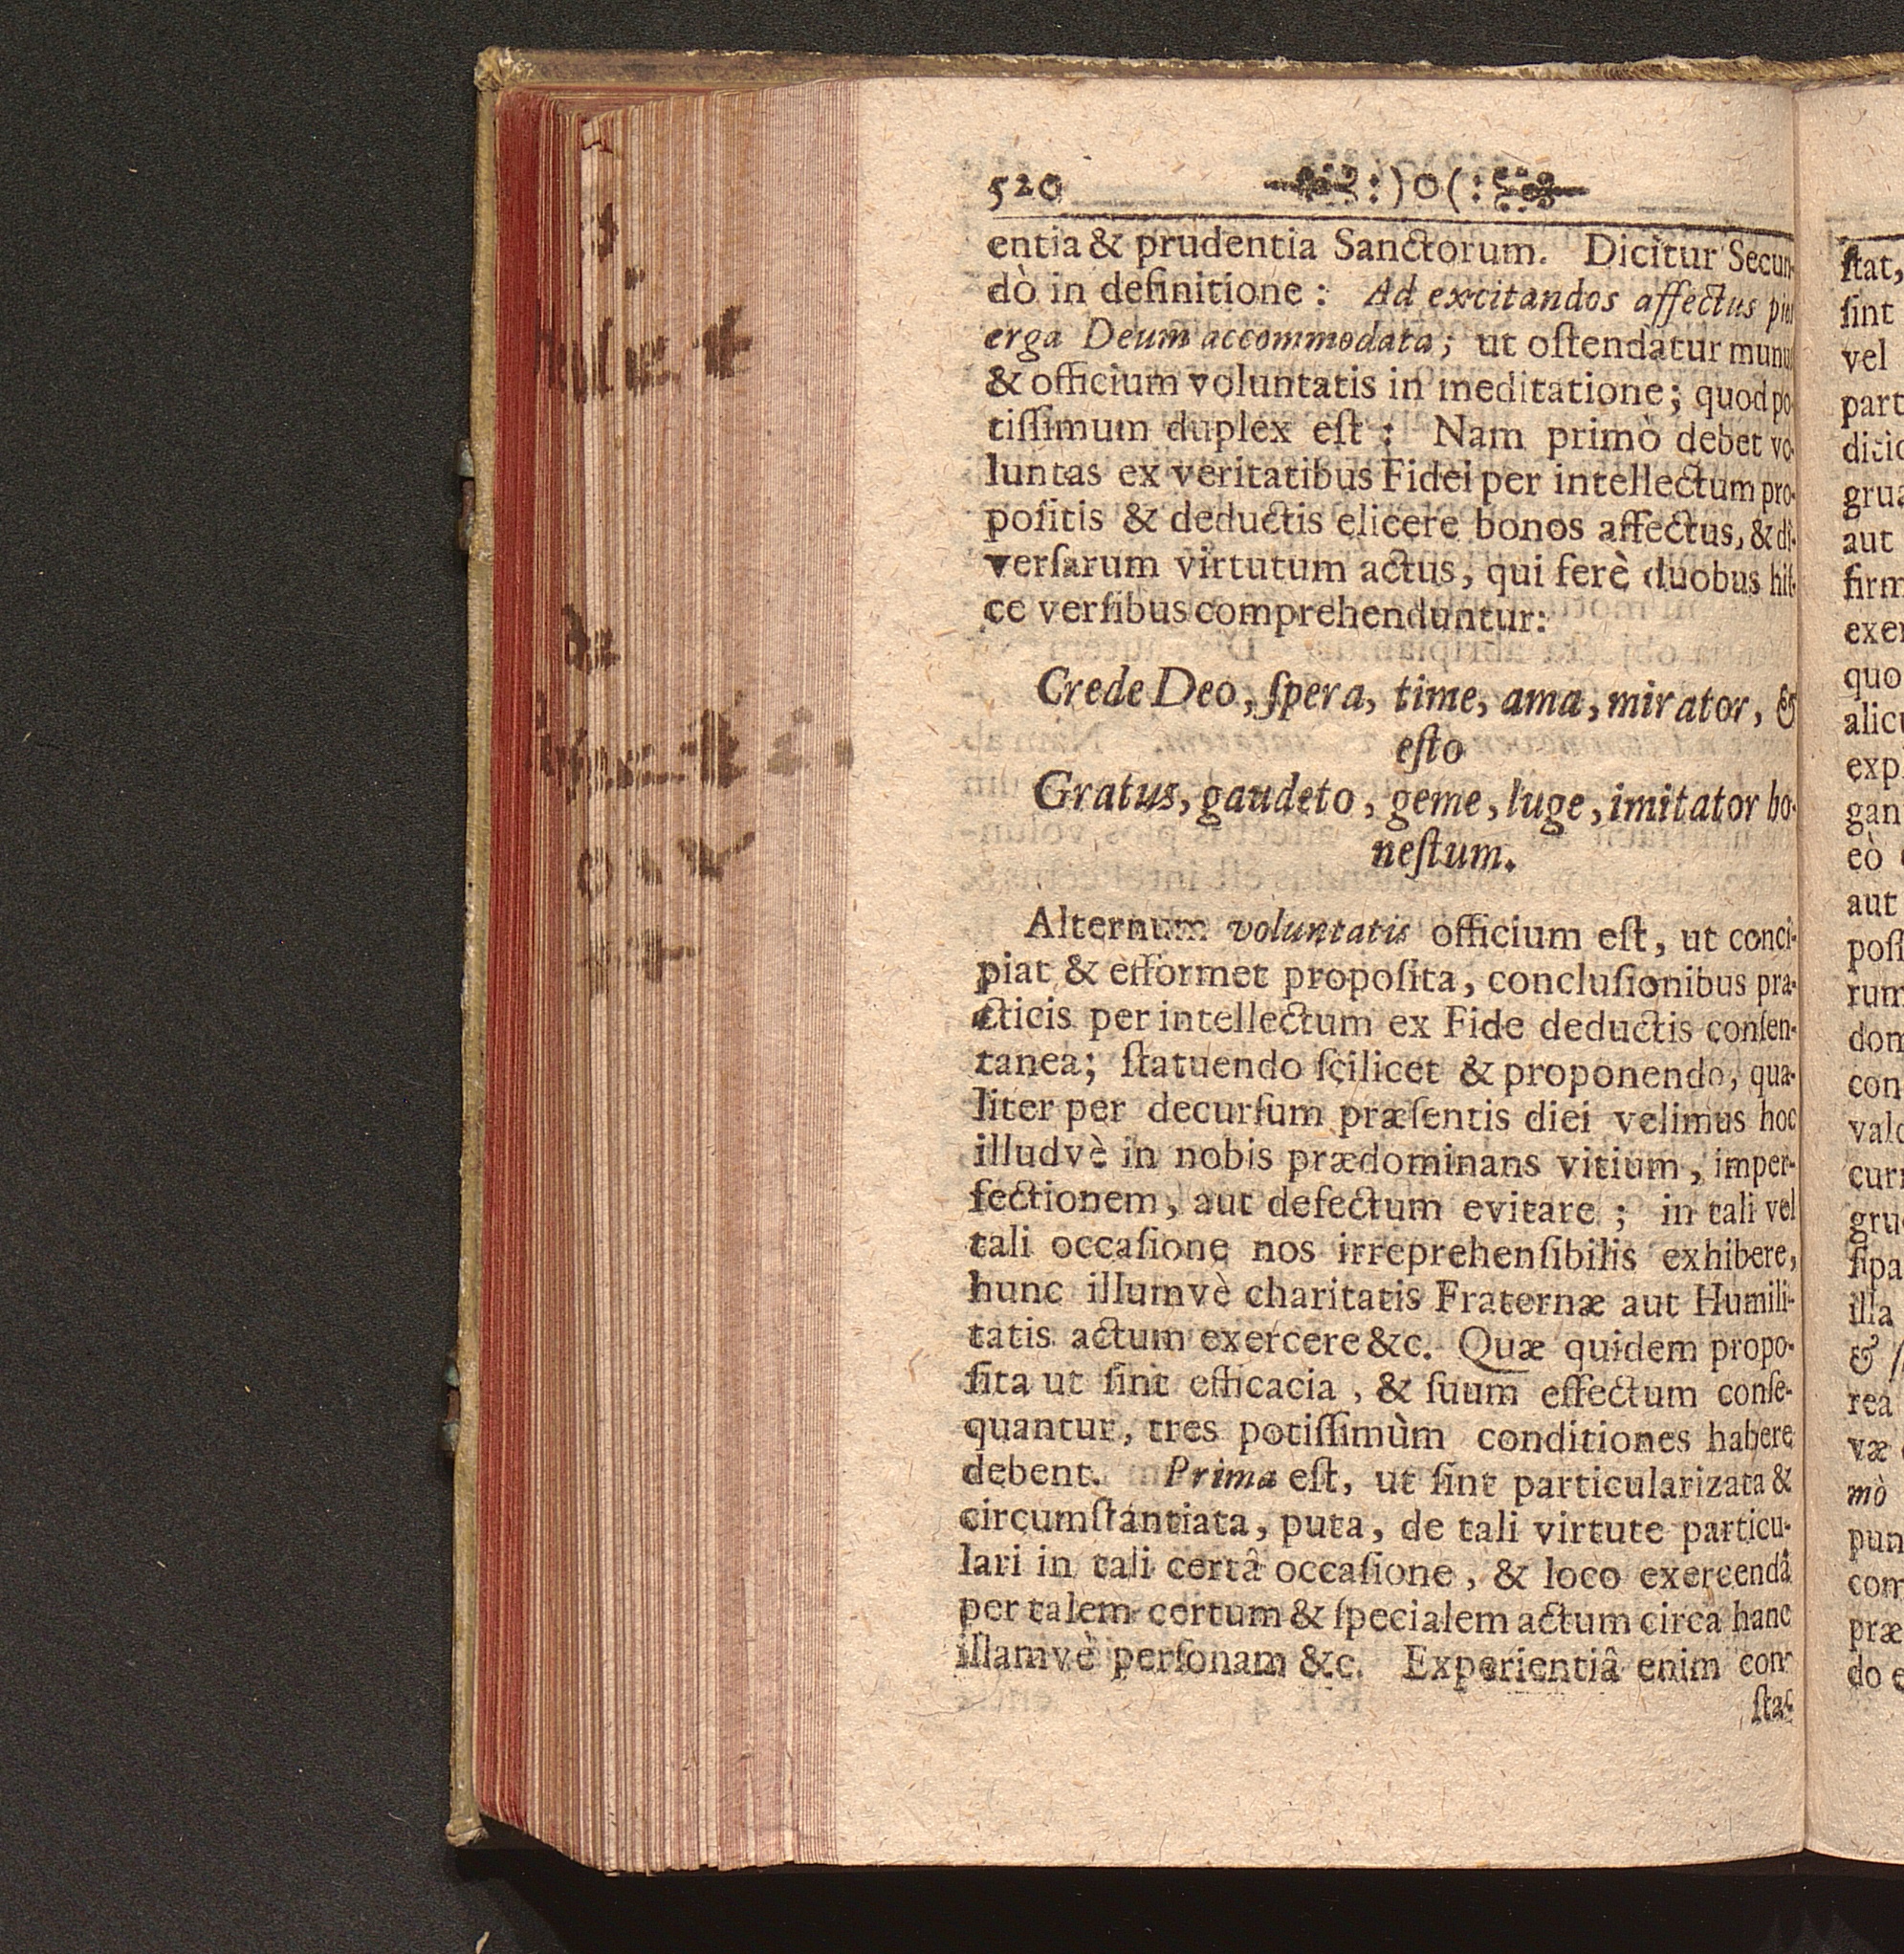 520 :)o(:
entia & prudentia Sanctorum. Dicitur Secun-
dò in definitione: Ad excitandos affectus pios
erga Deum accommodata; ut oſtendatur munus
& officium voluntatis in meditatione; quod po-
tiſſimum duplex eſt: Nam primò debet vo-
luntas ex veritatibus Fidei per intellectum pro-
poſitis & deductis elicere bonos affectus, & di-
verſarum virtutum actus, qui ferè duobus hiſ-
ce verſibus comprehenduntur:
Crede Deo, ſpera, time, ama, mirator, &
eſto
Gratus, gaudeto, geme, luge, imitator ho-
neſtum.
Alternum voluntatis officium eſt, ut conci-
piat & efformet propoſita, concluſionibus pra-
cticis per intellectum ex Fide deductis conſen-
tanea; ſtatuendo ſcilicet & proponendo, qua-
liter per decurſum præſentis diei velimus hoc
illudvè in nobis prædominans vitium, imper-
fectionem, aut defectum evitare; in tali vel
tali occaſione nos irreprehenſibilis exhibere,
hunc illumvè charitatis Fraternæ aut Humili-
tatis actum exercere &c. Quæ quidem propo-
ſita ut ſint efficacia, & ſuum effectum conſe-
quantur, tres potiſſimùm conditiones habere
debent. Prima eſt, ut ſint particularizata &
circumſtantiata, puta, de tali virtute particu-
lari in tali certâ occaſione, & loco exercendâ
per talem certum & ſpecialem actum circa hanc
illamvè perſonam &c. Experientiâ enim con-
ſtat
ſtat,
ſint
vel
aut
quo
eò
aut
con
illa
rea
mò
do